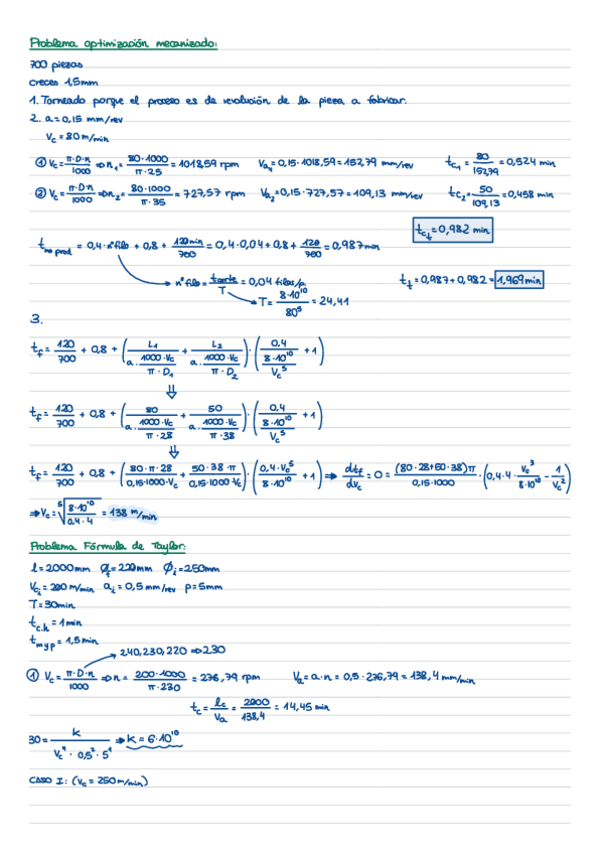 Problema optimización mecanizado:
700 piezas
creces 1,5mm
1. Torneado porque el proceso es de revolución de la pieza a fabricar.
2. a=0,15 mm/rev
Vc=80 m/min
① Vc=π·D·n/1000 ⇒ n₁=80·1000/π·25=1018,59 rpm Va₁=0,15·1018,59=152,79 mm/rev tc₁=80/152,79=0,524 min
② Vc=π·D·n/1000 ⇒ n₂=80·1000/π·35=727,57 rpm Va₂=0,15·727,57=109,13 mm/rev tc₂=50/109,13=0,458 min
tc_t=0,982 min
t no prod=0,4·nºfilo+0,8+120min/700=0,4·0,04+0,8+120/700=0,987min
nºfilo=tcorte/T=0,04 filos/p. t_t=0,987+0,982=1,969min
T=8·10¹⁰/80⁵=24,41
3.
t_f=120/700+0,8+(L₁/(a·1000·Vc/π·D₁)+L₂/(a·1000·Vc/π·D₂))·(0,4/(8·10¹⁰/Vc⁵)+1)
⇓
t_f=120/700+0,8+(80/(a·1000·Vc/π·28)+50/(a·1000·Vc/π·38))·(0,4/(8·10¹⁰/Vc⁵)+1)
⇓
t_f=120/700+0,8+(80·π·28/0,15·1000·Vc+50·38·π/0,15·1000·Vc)·(0,4·Vc⁵/8·10¹⁰+1)⇒dtf/dvc=0=(80·28+50·38)π/0,15·1000·(0,4·4·Vc³/8·10¹⁰-1/Vc²)
⇒Vc=⁵√(8·10¹⁰/0,4·4)=138 m/min
Problema Fórmula de Taylor:
l=2000mm ϕf=220mm ϕi=250mm
Vci=200 m/min ai=0,5mm/rev p=5mm
T=30min
tc.h=1min
tmyp=1,5min
240,230,220⇒230
① Vc=π·D·n/1000⇒n=200·1000/π·230=276,79 rpm Va=a·n=0,5·276,79=138,4 mm/min
tc=lc/Va=2000/138,4=14,45 min
30=K/Vc⁴·0,5²·5¹⇒K=6·10¹⁰
CASO I: (Vc=250m/min)